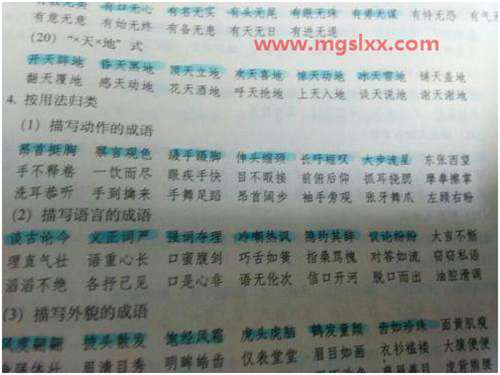 有口无心 有名无实 有头无尾 有眼无珠 有勇无谋 有恃无恐 有
有意无意 有始无终 有备无患 有天无日 有进无退
www.mgslxx.com
(20) “×天×地” 式
开天辟地 昏天黑地 顶天立地 欢天喜地 惊天动地 冰天雪地 铺天盖地
翻天覆地 感天动地 花天酒地 呼天抢地 上天入地 谈天说地 谢天谢地
4. 按用法归类
(1) 描写动作的成语
昂首挺胸 察言观色 蹑手蹑脚 伸头缩颈 长吁短叹 大步流星 东张西望
手不释卷 一饮而尽 眼疾手快 目不暇接 前俯后仰 抓耳挠腮 摩拳擦掌
洗耳恭听 手到擒来 手舞足蹈 昂首阔步 袖手旁观 张牙舞爪 左顾右盼
(2) 描写语言的成语
谈古论今 义正词严 强词夺理 冷嘲热讽 隐约其辞 议论纷纷 大言不惭
理直气壮 语重心长 口蜜腹剑 巧舌如簧 指桑骂槐 对答如流 窃窃私语
滔滔不绝 各抒己见 口是心非 语无伦次 信口开河 脱口而出 油腔滑调
(3) 描写外貌的成语
风度翩翩 披头散发 饱经风霜 虎头虎脑 鹤发童颜 面黄肌瘦
身强体壮 眉清目秀 明眸皓齿 仪表堂堂 眉目如画 衣衫褴褛 大腹便便